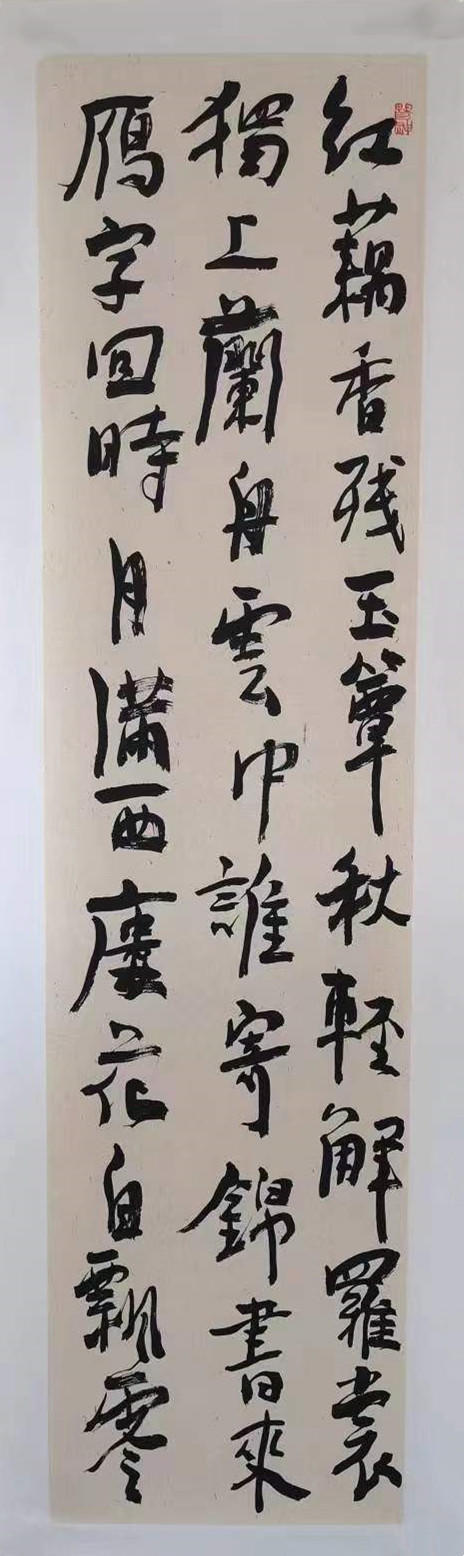 紅藕香残玉簟秋輕解羅裳
獨上蘭舟雲中誰寄錦書來
鴈字回時月滿西廔花自飄零